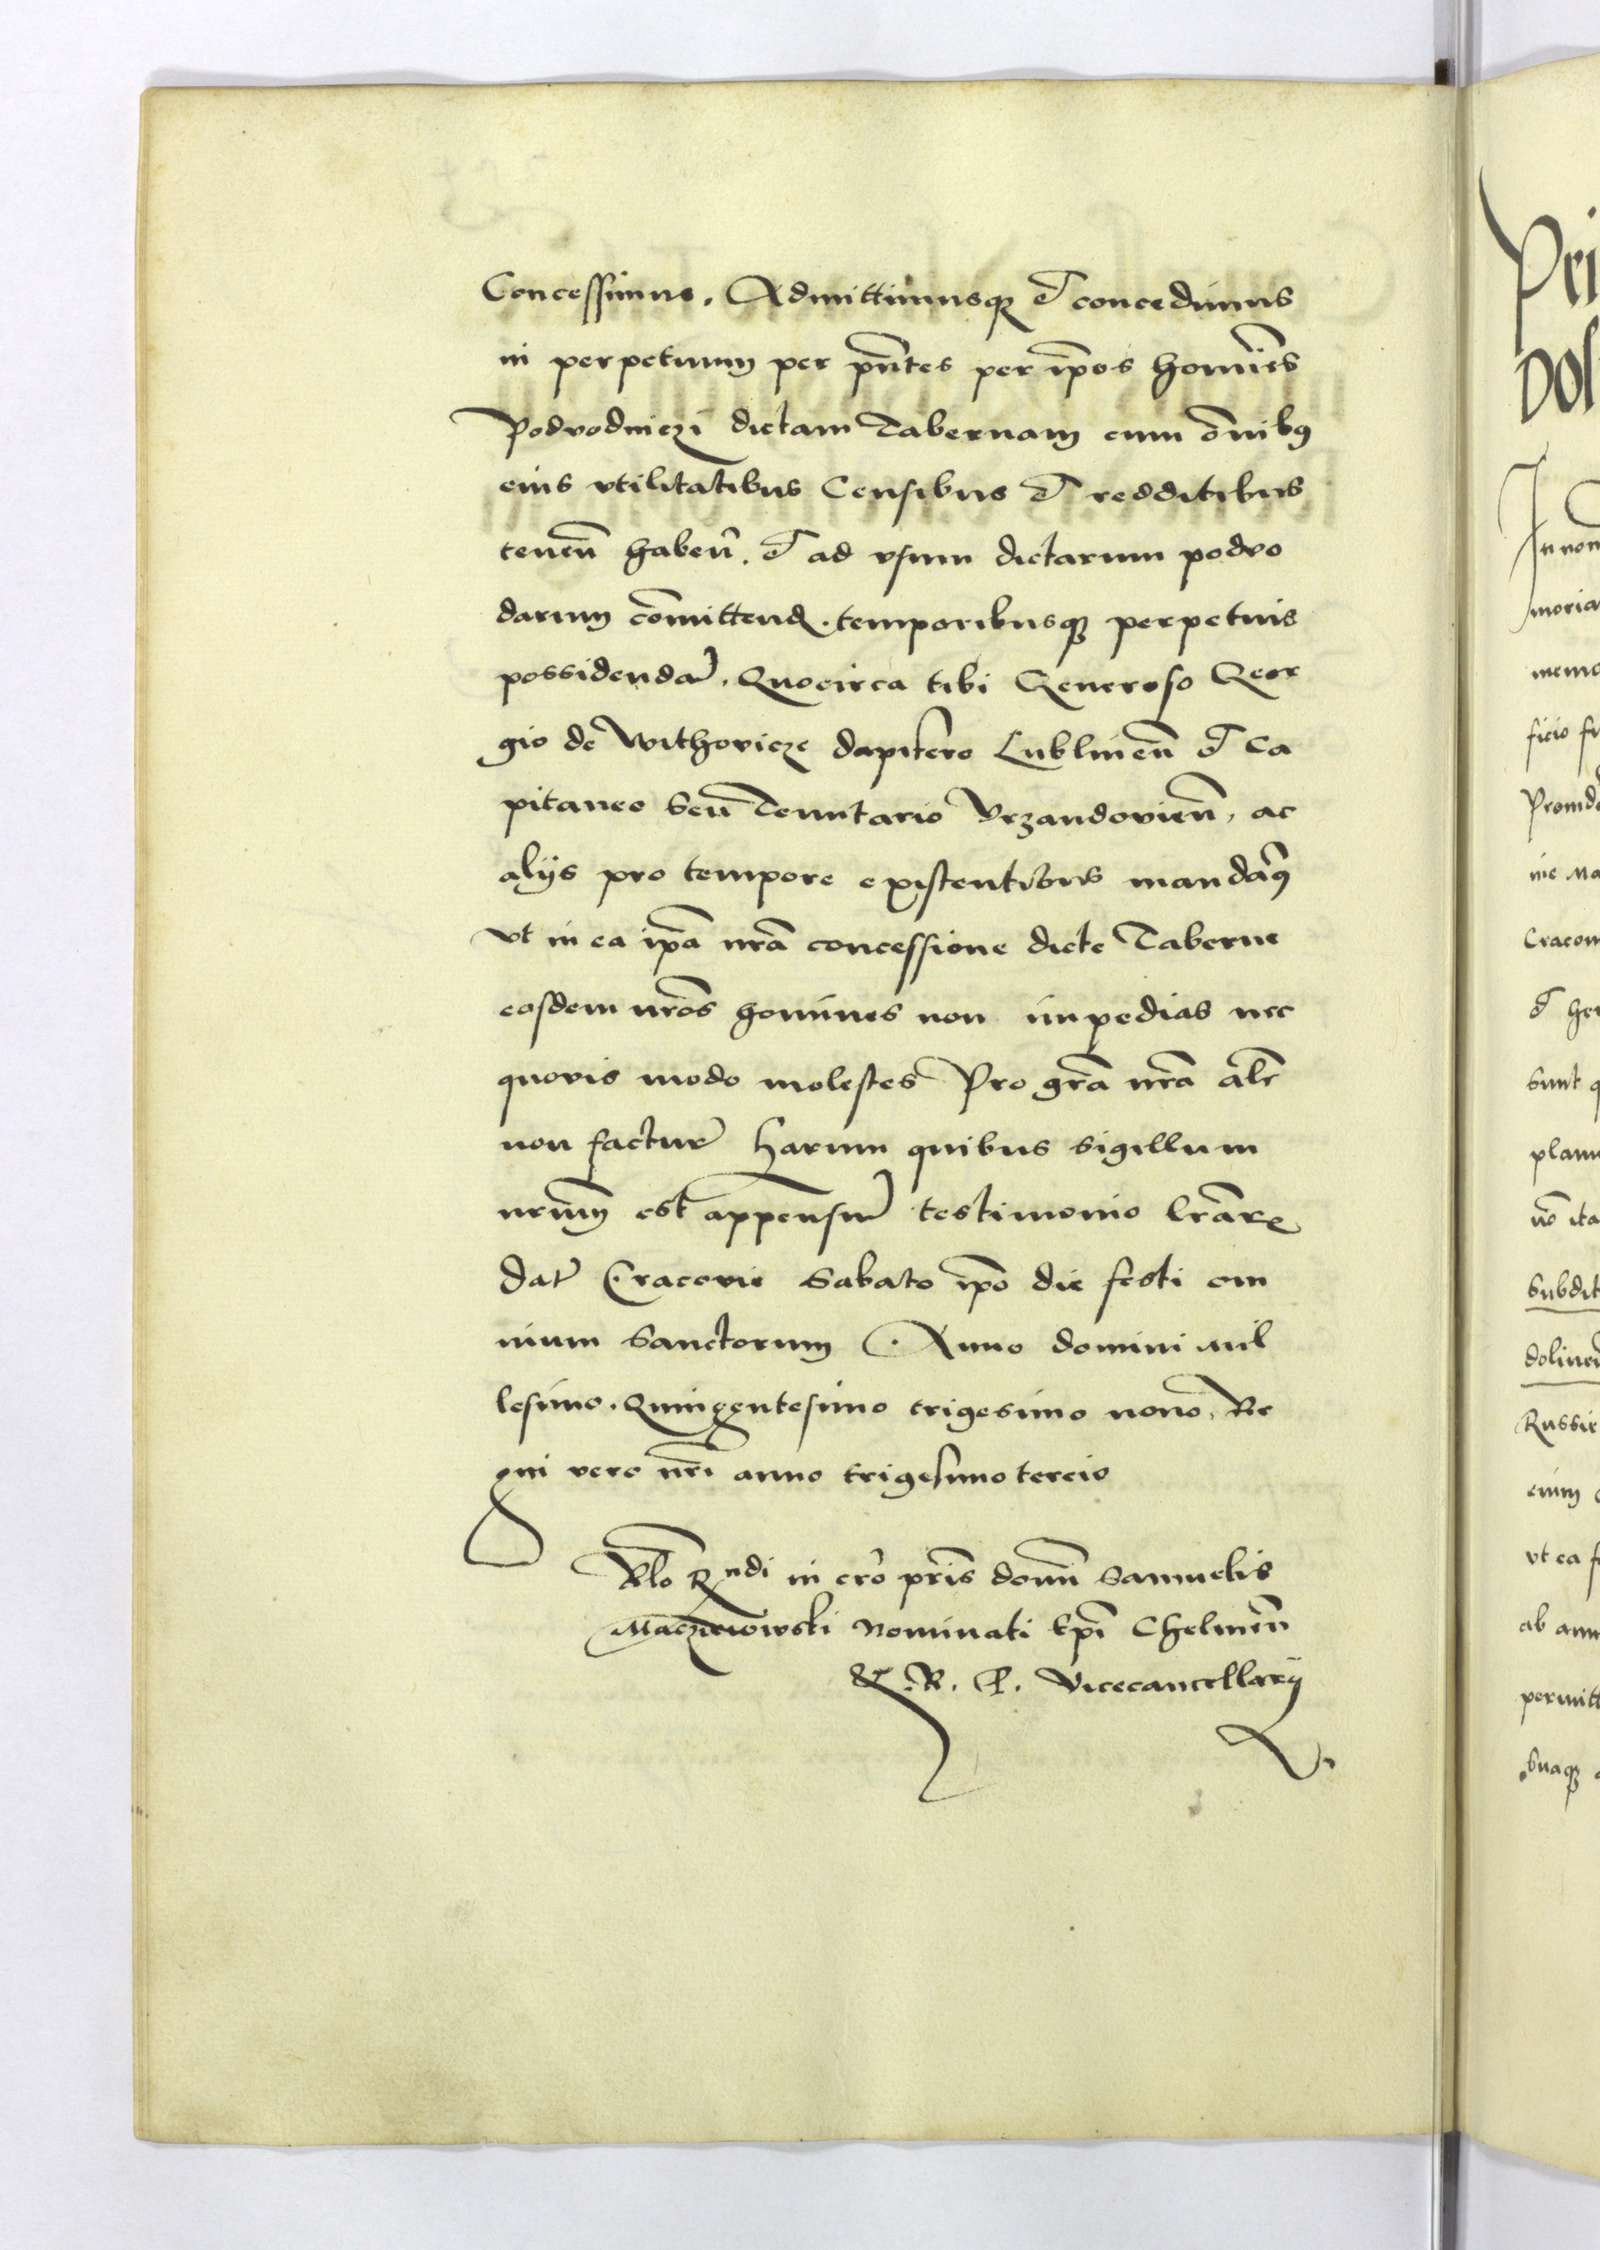 Concessimus. Admittimusq₃ et concedimus
in perpetuum per pn̄tes per ip̄os homīes
Podvodniczi dictam Tabernam cum o͞nibꝯ
eius vtilitatibus Censibus et redditibus
tenen̄ haben̄. et ad vsum dictarum podvo
darum co͞mittend. temporibusq₃ perpetuis
possidendā. Quocirca tibi Generoso Geor
gio de Withovicze dapifero Lublineñ et Ca
pitaneo seu Tenutario Vrzandovień, ac
alijs pro tempore existentibus mandaꝯ
vt in ea ip̄a nr̄a concessione dicte Taberne
eosdem nr̄os homines non impedias nec
quovis modo molestes Pro gr̄a nr̄a alr̄
non factur̄ Harum quibus sigillum
nr̄um est appensū testimonio lr̄arꝫ
Dat̄ Cracovie Sabato ip̄o die festi om
nium Sanctorum Anno domini mil
lesimo. Quingentesimo trigesimo nono. Re
gni vero nr̄i anno trigesimo tercio
Rlo R ndi in cr̄o pr̄is domn̄ Samuelis
Maczieiowski Nominati Ep̄i Chelmen̄
&. R. P. Vicecancellarij
Pri
pol
In nom
moria
memo
ficio
Promd
nie Ma
Cracom
et her
sunt q
plan
nō ita
Subdit
doline
Russie
eium
vt ea f
ab ann
permitt
buaq₃